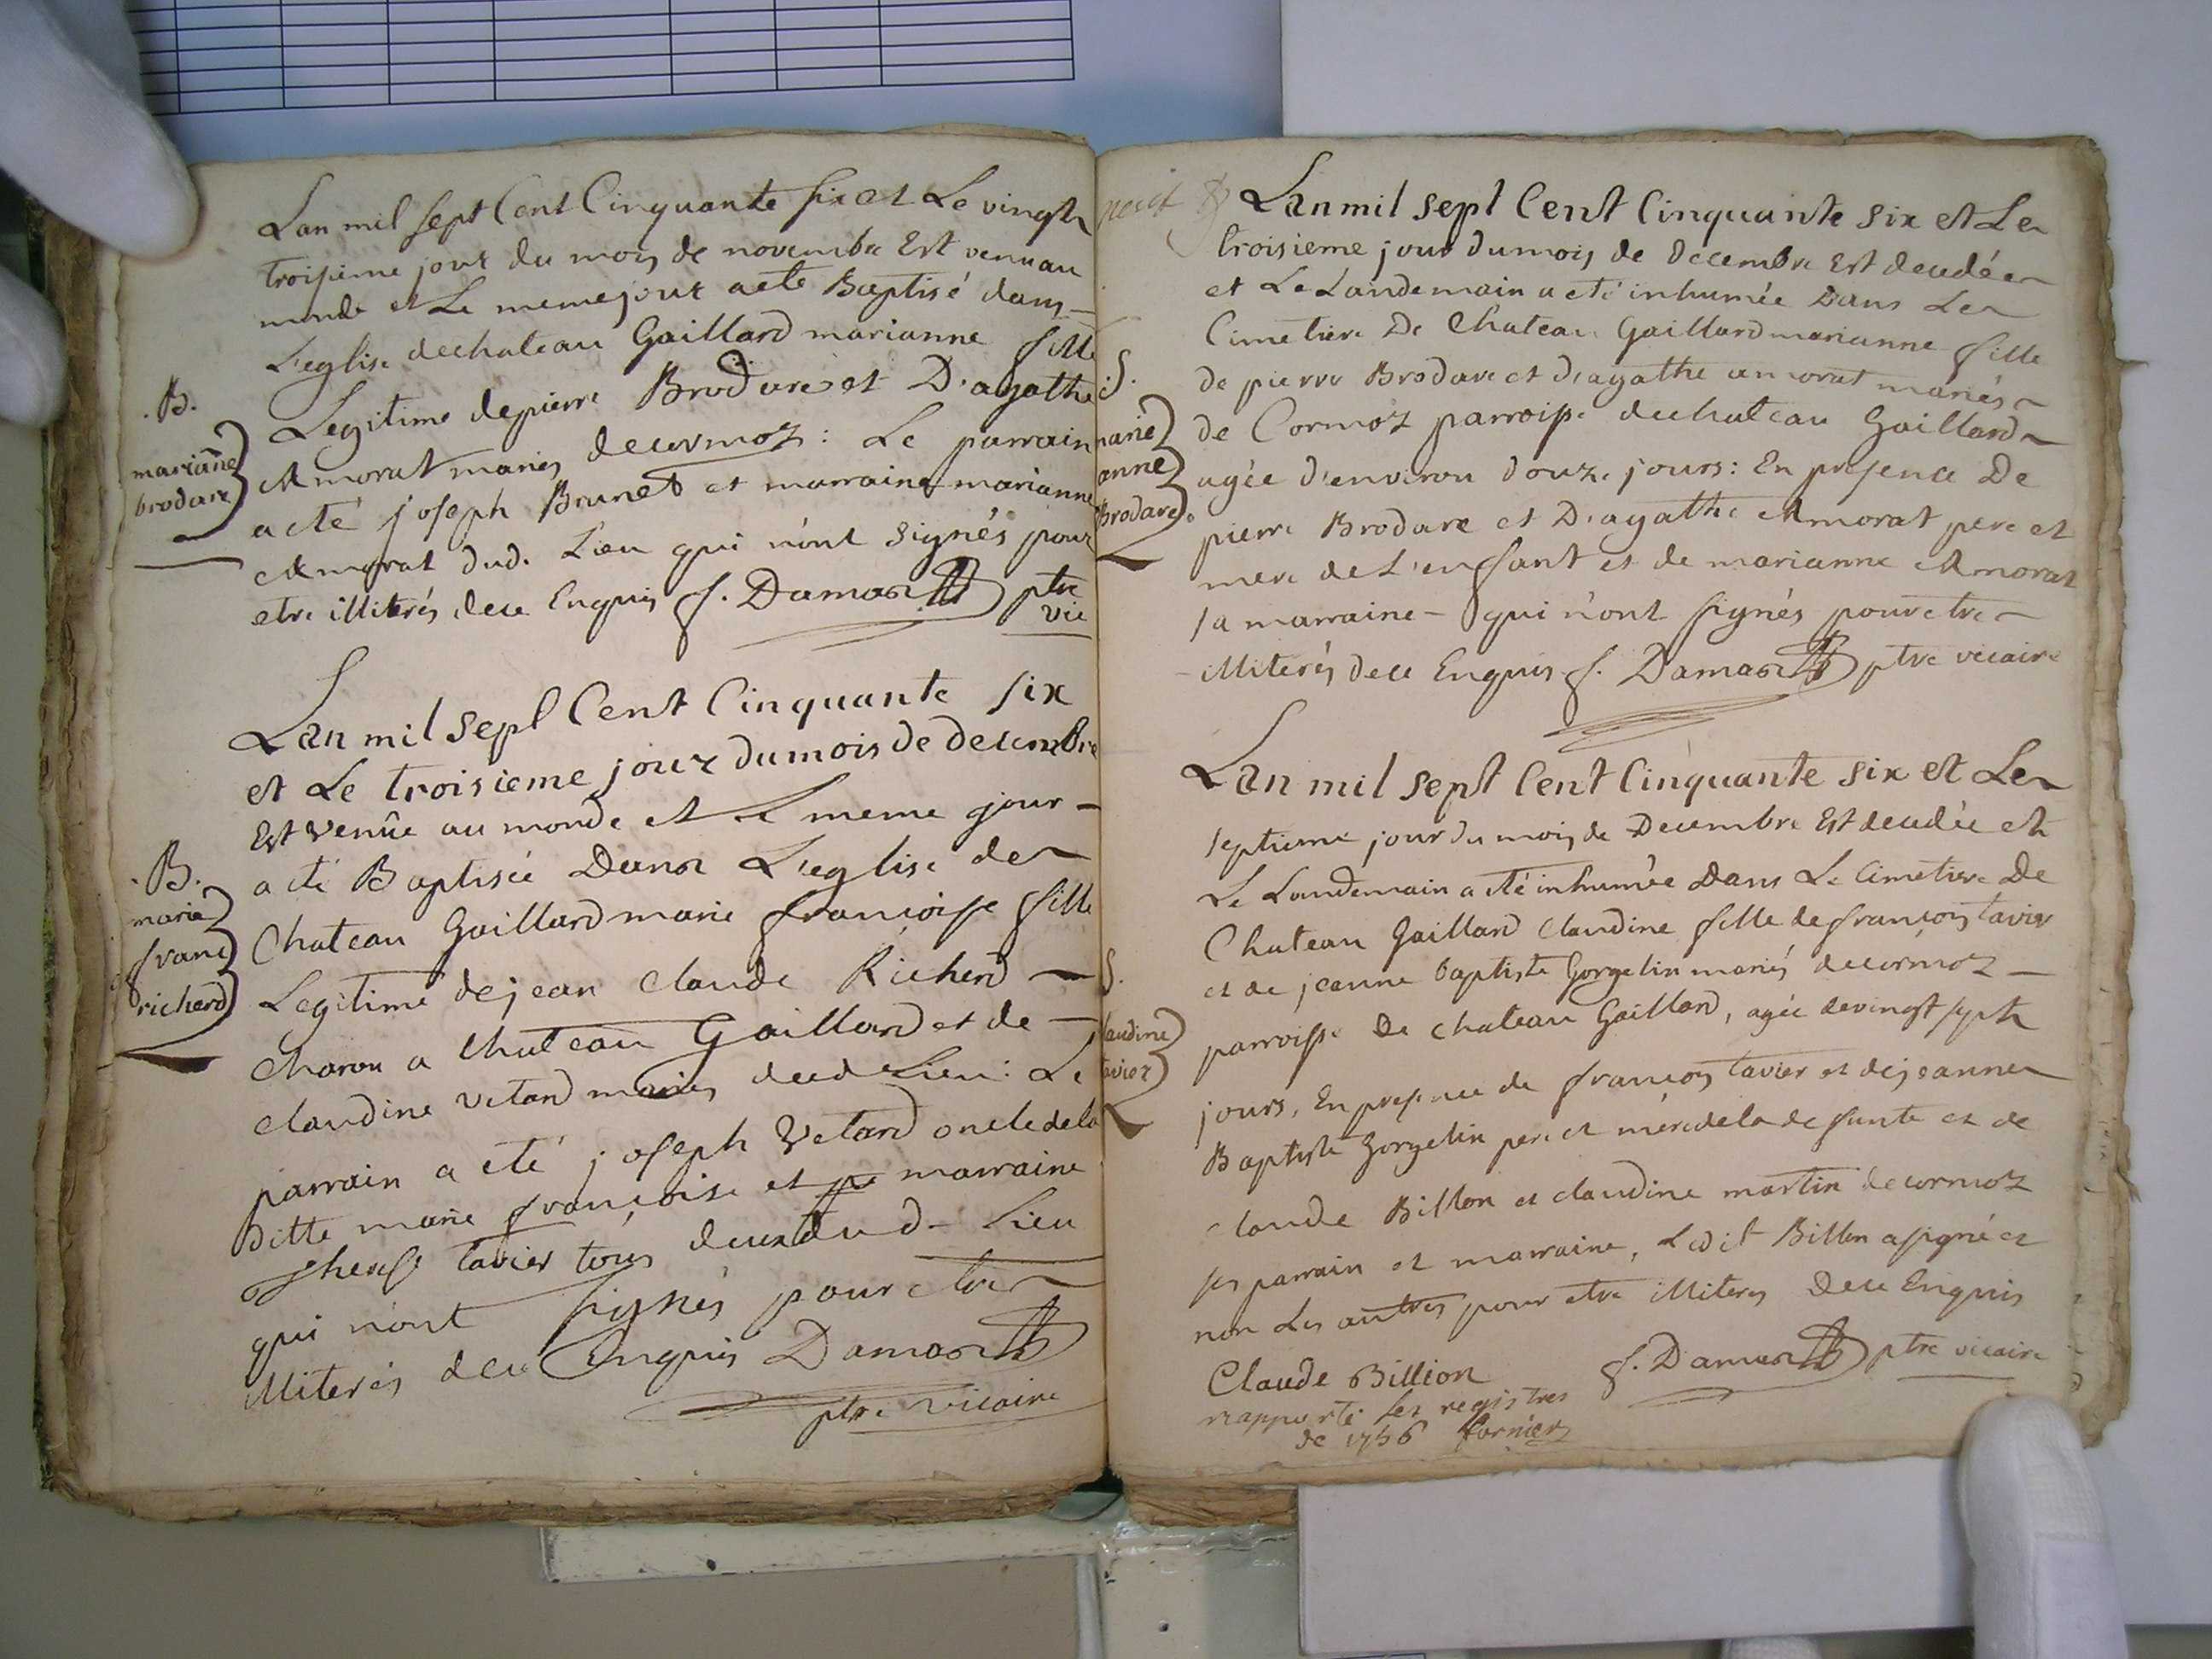 Lan mil sept Cent Cinquante six et Le vingt
troisieme jour du mois de novembre Est venu au
monde et Le meme jour a eté Baptisé dans
L'eglise dechateau Gaillard marianne fille
.B.
marianne
brodare
Legitime depierre Brodare et D'agathe
Amorat mariés decormoz : Le parrain
a eté joseph Brunet et marraine marianne
Amorat dud. Lieu qui n'ont signés pour
etre illiterés dece Enquis f. Damas ptre
vic
Lan mil sept Cent Cinquante six
et Le troisieme jour dumois de decembre
Est venüe au monde et Le meme jour
a eté Baptisée Dans L'eglise de
.B.
marie
franc
richerd
Chateau Gaillard marie françoise fille
Legitime dejean claude Richerd
charon a Chateau Gaillard et de
claudine vetard mariés dud Lieu : Le
parrain a eté joseph Vetard oncle dela
Ditte marie françoise et marraine
tavier tous deux dud Lieu
qui n'ont signés pour etre
illiterés dece Enquis Damas
ptre vicaire
Lan mil sept Cent Cinquante six et Le
troisieme jour dumois de decembre Est decedée
et Le Landemain a eté inhumée Dans Le
Cimetiere De Chateau Gaillard marianne fille
S.
marie
anne
Brodare
de pierre Brodare et d'agathe amorat mariés
de Cormoz parroisse dechateau Gaillard
agée d'environ douze jours : En presence De
pierre Brodare et D'agathe Amorat pere et
mere de L'enfant et de marianne Amorat
sa marraine - qui n'ont signés pour etre
illiterés dece Enquis f. Damas ptre vicaire
Lan mil sept Cent Cinquante six et Le
septieme jour du mois de Decembre Est decedée et
Le Landemain a eté inhumée Dans Le Cimetiere De
Chateau Gaillard claudine fille de françois tavier
et de jeanne baptiste Gorgelin mariés decormoz
S.
claudine
tavier
parroisse De chateau Gaillard, agée devingt sept
jours, En presence de françois tavier et dejeanne
Baptiste Gorgelin pere et mere dela defunte et de
claude Billon et claudine martin decormoz
ses parrain et marraine, Ledit Billon a signé et
non Les autres pour etre illiterés Dece Enquis
Claude Billion f. Damas ptre vicaire
rapporté les registres
de 1756 fornier